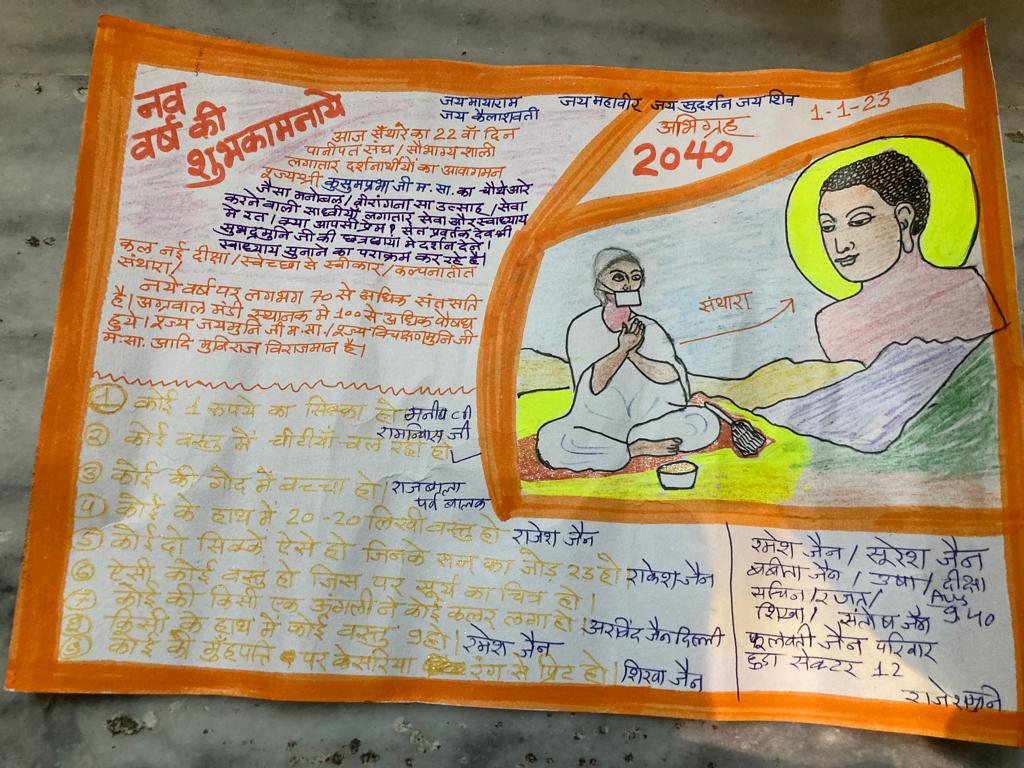 नव
वर्ष की
शुभकामनाये
जय मायाराम
जय कैलाशवती
जय महावीर जय सुदर्शन जय शिव
1-1-23
अभिग्रह
2040
आज संथारे का 22 वाँ दिन
पानीपत संघ/सौभाग्यशाली
लगातार दर्शनार्थीयों का आवागमन
पूज्य श्री कुसुमप्रभा जी म.सा. का चौथे आरे
जैसा मनोबल/वीरांगना सा उत्साह/सेवा
करने वाली साध्वीयाँ लगातार सेवा और स्वाध्याय
मे रत। क्या आपसी प्रेम। संत प्रवर्तक देव श्री
सुभद्रमुनि जी की छत्रछाया मे दर्शन देते।
स्वाध्याय सुनाने का पराक्रम कर रहे है।
कुल नई दीक्षा/स्वेच्छा से स्वीकार/कल्पनातीत
संथारा/
नये वर्ष पर लगभग 70 से अधिक संत सति
है। अग्रवाल मंडी स्थानक मे 100 से अधिक पौषध
हुये। पूज्य जयमुनि जी म.सा./पूज्य विचक्षणमुनि जी
म.सा. आदि मुनिराज विराजमान है।
संथारा
① कोई 1 रुपये का सिक्का हो मनीष जी
② कोई वस्तु में चीटीयाँ चल रही हो। रामनिवास जी
③ कोई की गोद में बच्चा हो। राजबाला
पर्व बालक
④ कोई के हाथ में 20-20 लिखी वस्तु हो राजेश जैन
⑤ कोई दो सिक्के ऐसे हो जिनके सन का जोड़ 23 हो राकेश जैन
⑥ ऐसी कोई वस्तु हो जिस पर सूर्य का चित्र हो।
⑦ कोई की किसी एक अंगुली ने कोई कलर लगा हो। अरविंद जैन दिल्ली
⑧ किसी के हाथ में कोई वस्तु 9 हो। रमेश जैन
⑨ कोई की मुँहपति पर केसरिया रंग से प्रिंट हो। शिखा जैन
रमेश जैन/सुरेश जैन
बबीता जैन/उषा/दीक्षा
सचिन/रजत/
शिखा/संतोष जैन 9 40
फूलवती जैन परिवार
हुडा सेक्टर 12
राजेशमुनि